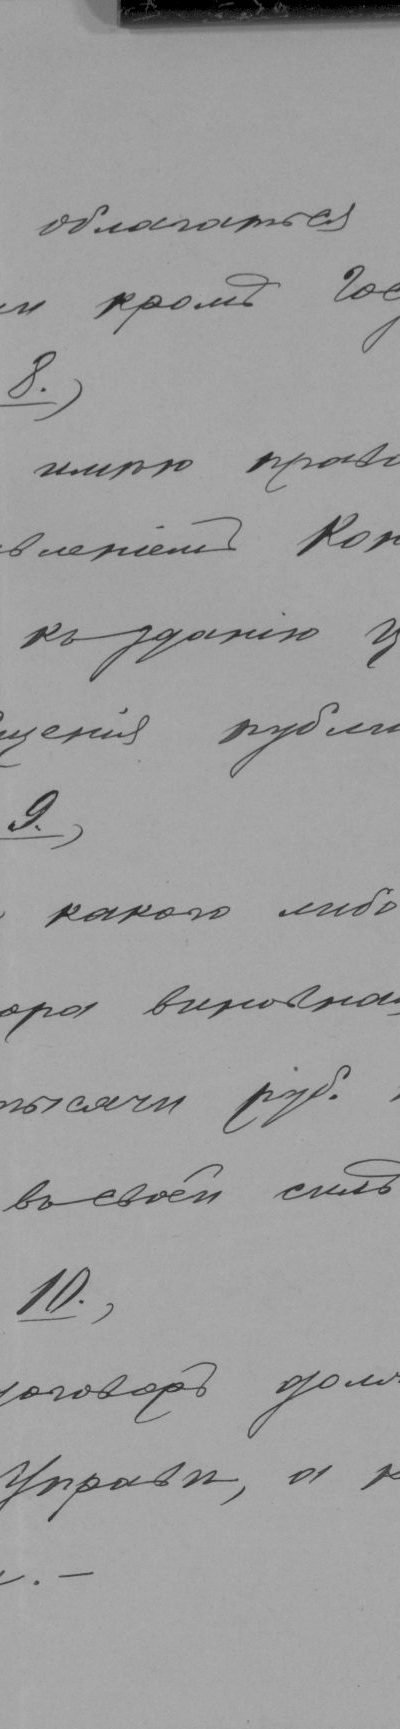 облагаться
ми кромѣ Гос
8.)
имѣю право
вленіемъ Кон
къ зданію ц
щенія публи
9.)
какого либо
ора виновна
тысячи руб.
въ своей силѣ
10.,
договоръ долж
Управы, а к
. —